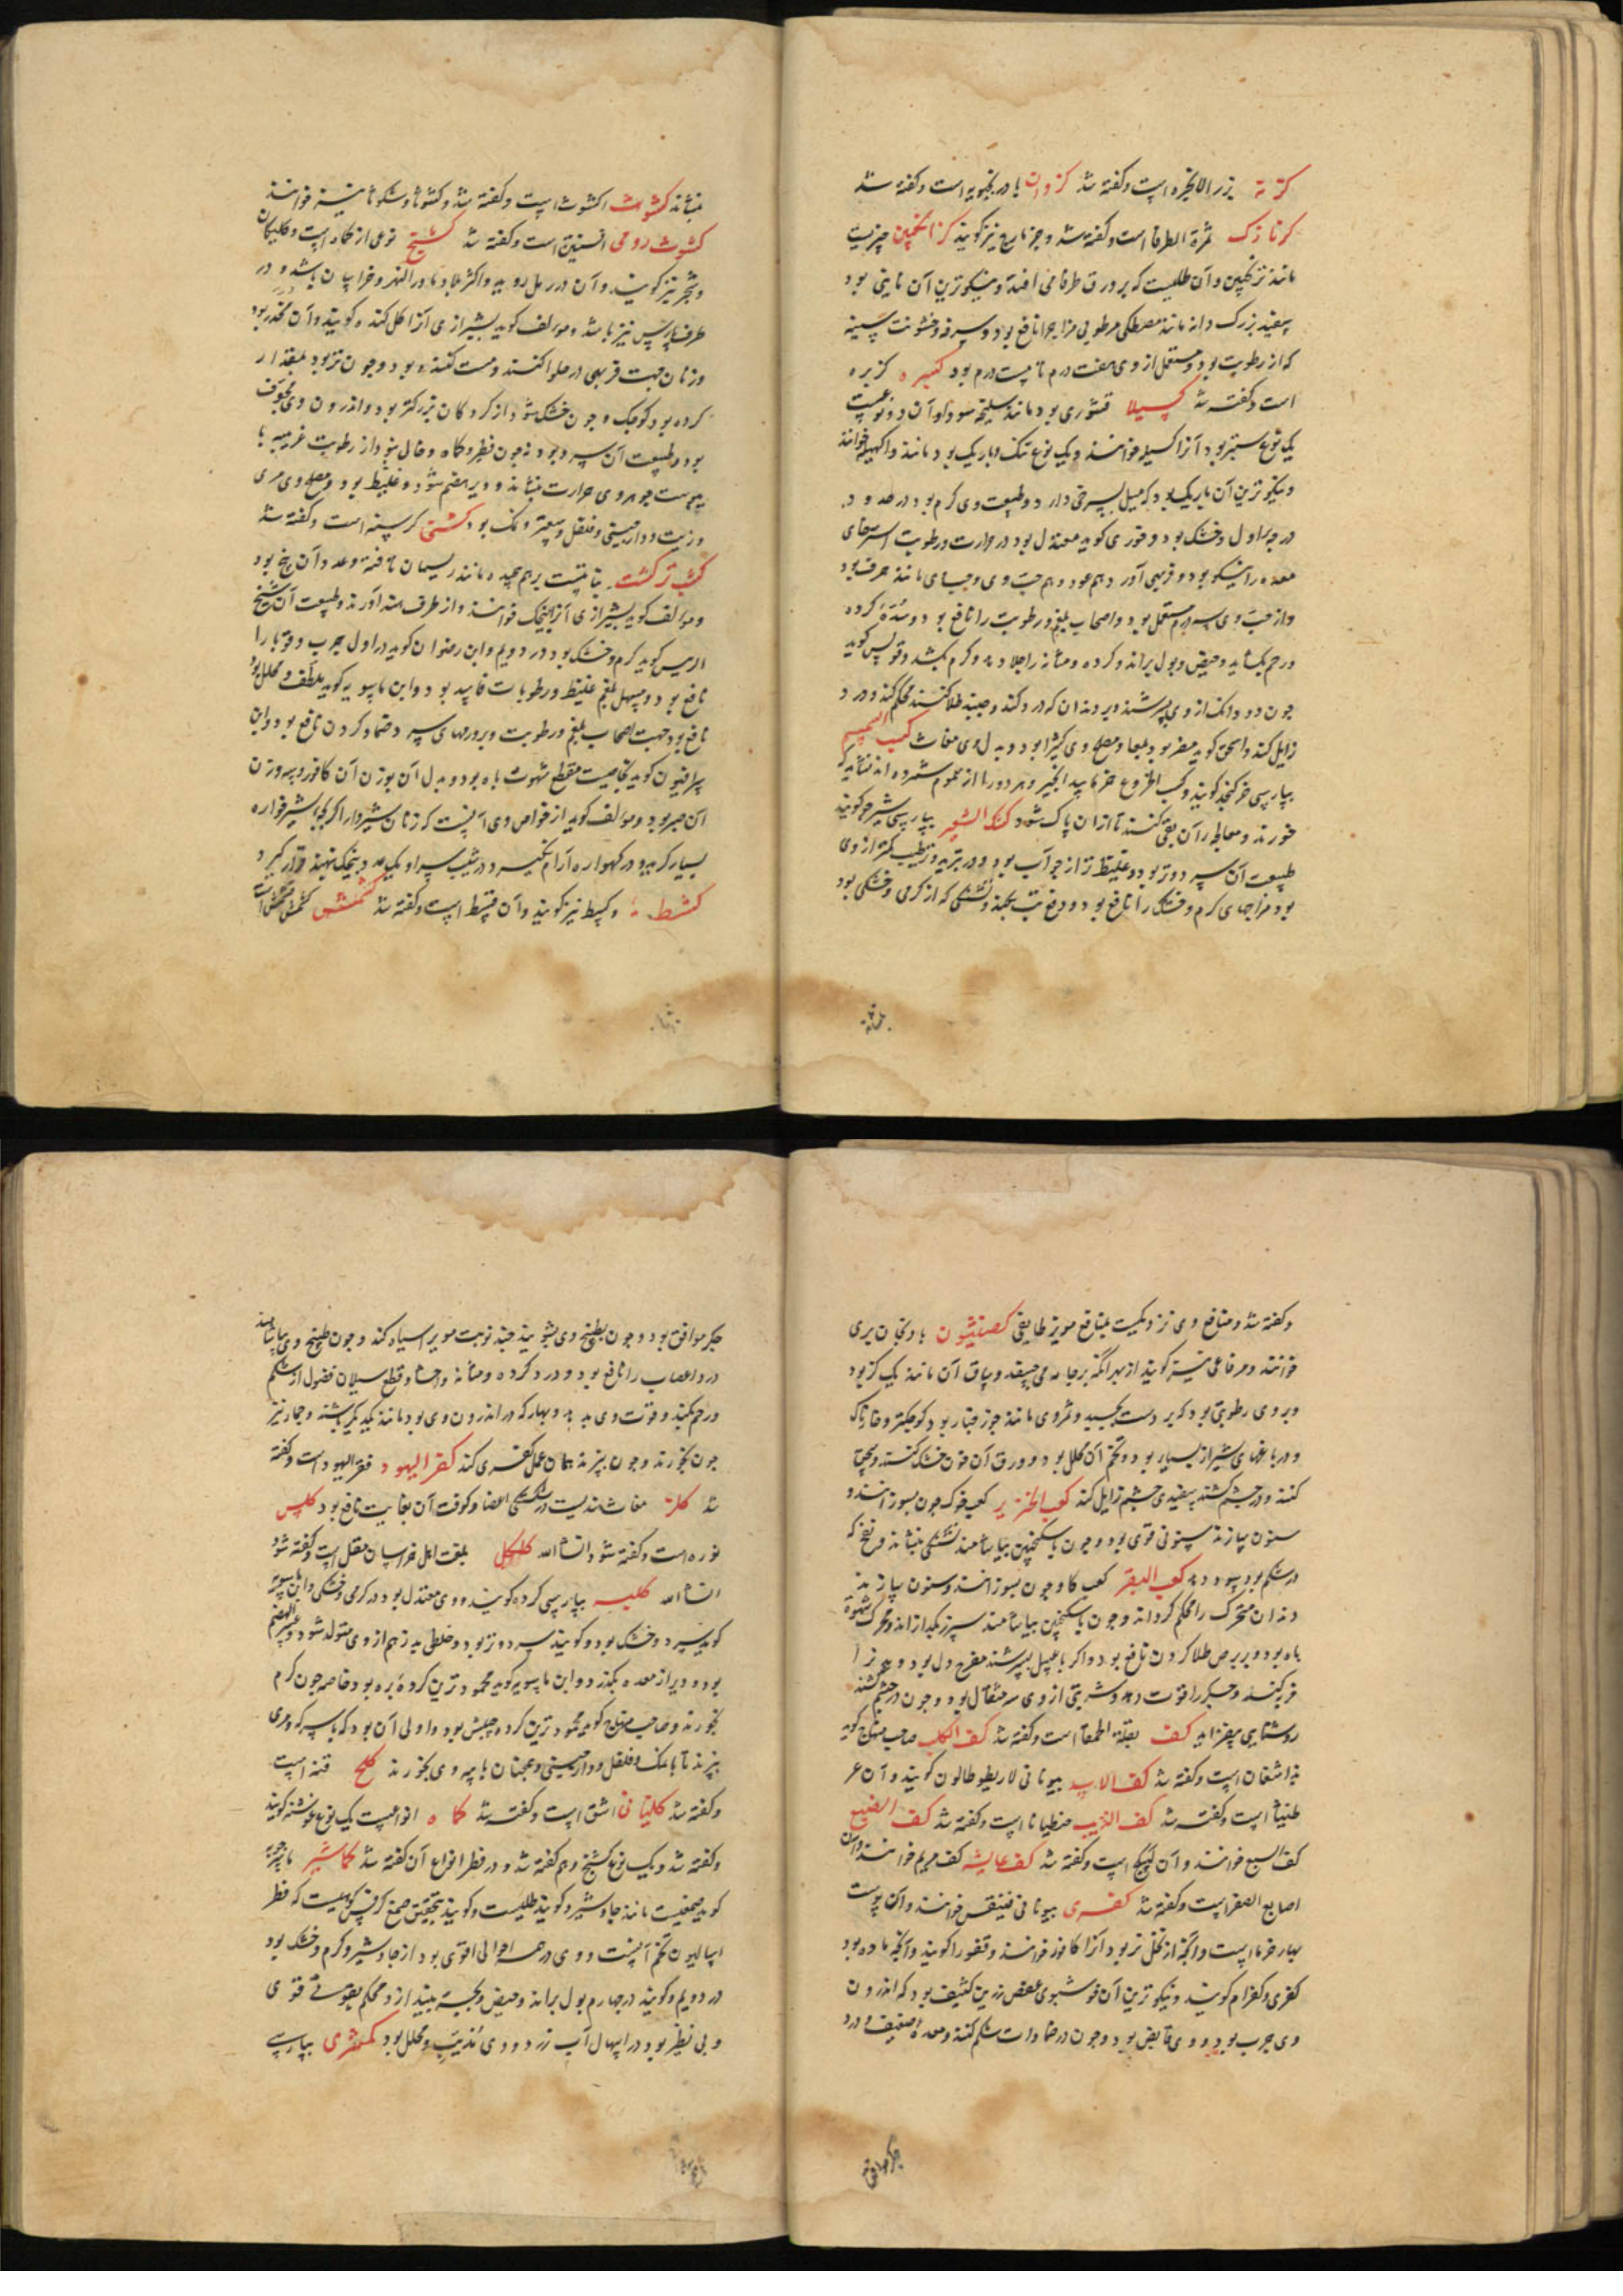 کزنه بزر الانجره است و کفته شد کزوان بادرنجبویه است و کفته شد
کزمازک ثمرة الطرفا است و کفته شد و جزمازج نیز کویند کزانکبین چیزیست
مانند ترنجبین و آن طلیست که بر ورق طرفا می افتد و نیکوترین آن
سفید بزرک دانه مانند مصطکی مرطوبی مزاجرا نافع بود و سرفه و خشونت سینه
که از رطوبت بود و مستعمل از وی هفت درم تا بیست درم بود کسبره کزبره
است و کفته شد کسیلا قشوری بود مانند سلیخه سودا و آن دو نوعست
یک نوع ستبر بود آنرا کسیلو خوانند و یک نوع تنک و باریک بود مانند
و نیکوترین آن باریک بود که میل بسرخی دارد و طبیعت وی کرم بود در حدود
درجه اول و خشک بود و فوری کوید معتدل بود در حرارت و رطوبت استرخای
معده را نیکو بود و فربهی آورد هم عود و هم حب وی و حبهای مانند حرف بود
و از حب وی سه درم مستعمل بود و اصحاب بلغم و رطوبت را نافع بود و سدّهٔ کرده
و رحم بکشاید و حیض و بول براند و کرده و مثانه را جلا دهد و کرم بکشد و کوید
چون دو دانک از وی بسرشند و بر دندان که درد کند و چند طلا کنند محکم کند و درد
زایل کند و اسحق کوید مضر بود بامعا و مصلح وی کثیرا بود و بدل وی مغاث کسب السمسم
بپارسی خر کنجد کویند و کسب الخروع خر بیدانجیر و هر دو را از سموم شمرده اند نشاید که
خورند و مخالط آن بقی کنند تا از آن پاک شود کشک الشعیر بپارسی شیر جو کویند
طبیعت آن سرد و تر بود و غلیظ تر از جوآب بود و در تبرید و ترطیب کمتر از وی
بود مزاجهای کرم و خشک را نافع بود و دفع تب بکند و تشنکی که از کرمی و خشکی بود
بنشاند
بنشاند کشوث اکشوث است و کفته شد و کشوثا و شکوثا نیز خوانند
کشوث رومی افسنتین است و کفته شد کشنج نوعی از کماه است و کلیکان
و شجر نیز کویند و آن در رمل روید و اکثر بلاد ماورا النهر و خراسان باشد و در
طرف پارس نیز باشد و مولف کوید بشیرازی آنرا کل کنده کویند و آن مخدر بود
و زنان جهت فربهی در حلوا کنند و مست کننده بود و چون تر بود بمقدار
کرده بود کوچک و چون خشک شود از کردکان بزرکتر بود و اندرون وی مجوف
بود و طبیعت آن سرد بود نه چون فطر و کماه و خالی نبود از رطوبت غریبه با
یبوست جوهر وی حرارت بنشاند و دیر هضم شود و غلیظ بود و مصلح وی مری
و زیت و دارچینی و فلفل و سعتر و نمک بود کشنی کرسنه است و کفته شد
کشت بر کشت بناتیست بر هم پیچیده مانند ریسمان تافته و عدد آن پنج بود
و مولف کوید بشیرازی آنرا پیچک خوانند و از طرف هند آورند و طبیعت آن شیخ
الریس کوید کرم و خشک بود در دویم و ابن رضوان کوید در اول جرب و قوبا را
نافع بود و مسهل بلغم غلیظ و رطوبات فاسد بود و ابن ماسویه کوید ملطف و محلل بود
نافع بود جهت اصحاب بلغم و رطوبت و برورمهای سرد ضماد کردن نافع بود و ابن
سرافیون کوید بخاصیت مقطع شهوت باه بود و بدل آن بوزن آن کافور و سه وزن
آن صبر بود و مولف کوید از خواص وی آنست که زنان شیردار اکر کودک شیرخواره
بسیار کرید و در کهواره آرام نکیرد و در شیب سر او یک عدد پیچک بنهند قرار کیرد
کشط و کسط نیز کویند و آن قسط است و کفته شد کشمش
و کفته شد و منافع وی نزدیکست بمنافع مویز طایفی کصنثیون بادنجان بری
خوانند و مرماعی نیز کویند از بهر آنکه بر جامه می چسبد و ساق آن مانند یک کز بود
و بروی رطوبتی بود که بر دست بچسبد و ثمر وی مانند جوز چنار بود کوچکتر و خارناک
و در باغهای شیراز بسیار بود و تخم آن محلل بود و ورق آن چون خشک کنند و سحق
کنند و در چشم کشند سفیدی چشم زایل کند کعب الخنزیر کعب خوک چون بسوزانند و
سنون سازند سنونی قوی بود و چون با سکنجبین بیاشامند تشنکی بنشاند و نفخ که
در شکم بود سود دهد کعب البقر کعب کاو چون بسوزانند و سنون سازند
دندان متحرک را محکم کرداند و چون با سکنجبین بیاشامند سپرز بکدازاند و محرک شهوة
باه بود و بر برص طلا کردن نافع بود و اکر با عسل بسرشند مفرح دل بود و
فربه کند و جکر را قوت دهد و شربتی از وی سه مثقال بود و چون در چشم کشند
روشنایی بیفزاید کف بقلة الحمقا است و کفته شد کف الکلب صاحب منهاج کوید
بداشغان است و کفته شد کف الاسد بیونانی لاونطوطالون کویند و آن عر
طنیثا است و کفته شد کف الذیب جنطیانا است و کفته شد کف الضبع
کف السبع خوانند و آن کبیکج است و کفته شد کف عایشه کف مریم خوانند و آن
اصابع الصفر است و کفته شد کفری بیونانی فینقس خوانند و آن پوست
بهار خرما است و آنچه از نخل نر بود آنرا کافور خوانند و قفورا کویند و آنچه ماده بود
کفری و کفرام کویند و نیکوترین آن خوشبوی عفص رزین کثیف بود که اندرون
وی چرب بود و وی قابض بود و چون در ضمادات شکم کنند و معدهٔ ضعیف و درد
جکر موافق
جکر موافق بود و چون بطبیخ وی بشویند چند نوبت موی را سیاه کند و چون طبیخ وی بیاشامند
درد اعصاب را نافع بود و درد کرده و مثانه و احشا و قطع سیلان فضول از شکم
و رحم بکند و قوت وی بدهد و بهار که در اندرون وی بود مانند یکدیکر باشند و جمار نیز
چون بخورند و چون بپزند همان عمل کفری کند کفر الیهود قفر الیهود است و کفته
شد کلز مغاث هندیست در شکستکی اعضا و کوفت آن بغایت نافع بود کلس
نوره است و کفته شود انشا الله کلکل بلغت اهل خراسان مقل است و کفته شود
انشا الله کلیه بپارسی کرده کویند و وی معتدل بود در کرمی و خشکی و ابن ماسویه
کوید سرد و خشک بود و کویند سرد و تر بود و خلطی بد زهم از وی متولد شود و عسر الهضم
بود و دیر از معده بکذرد و ابن ماسویه کوید محمودترین کردهٔ بره بود خاصه چون کرم
بخورند و صاحب منهاج کوید محمودترین کرده جلبش بود و اولی آن بود که با سرکه و مری
بپزند تا با نمک و فلفل و دارچینی و همچنان با پیه وی بخورند کلخ قنه است
و کفته شد کلنبانی اشق است و کفته شد کماه انواعست یک نوع غوشنه کویند
و کفته شد و یک نوع کشنج و هم کفته شد و در فطر انواع آن کفته شد کماشیر ماسرجویه
کوید صمغیست مانند جاوشیر و کویند طلیست و کویند بتحقیق صمغ کرفس کوهیست که فطر
اسالیون تخم آنست و وی در همه احوالی اقوی بود از جاوشیر و کرم و خشک بود
در دویم و کویند در چهارم بول براند و حیض و بچه بیندازد محکم بقوتی قوی
و بی نظیر بود در اسهال آب زرد و وی مذیب و محلل بود کمثری بپارسی